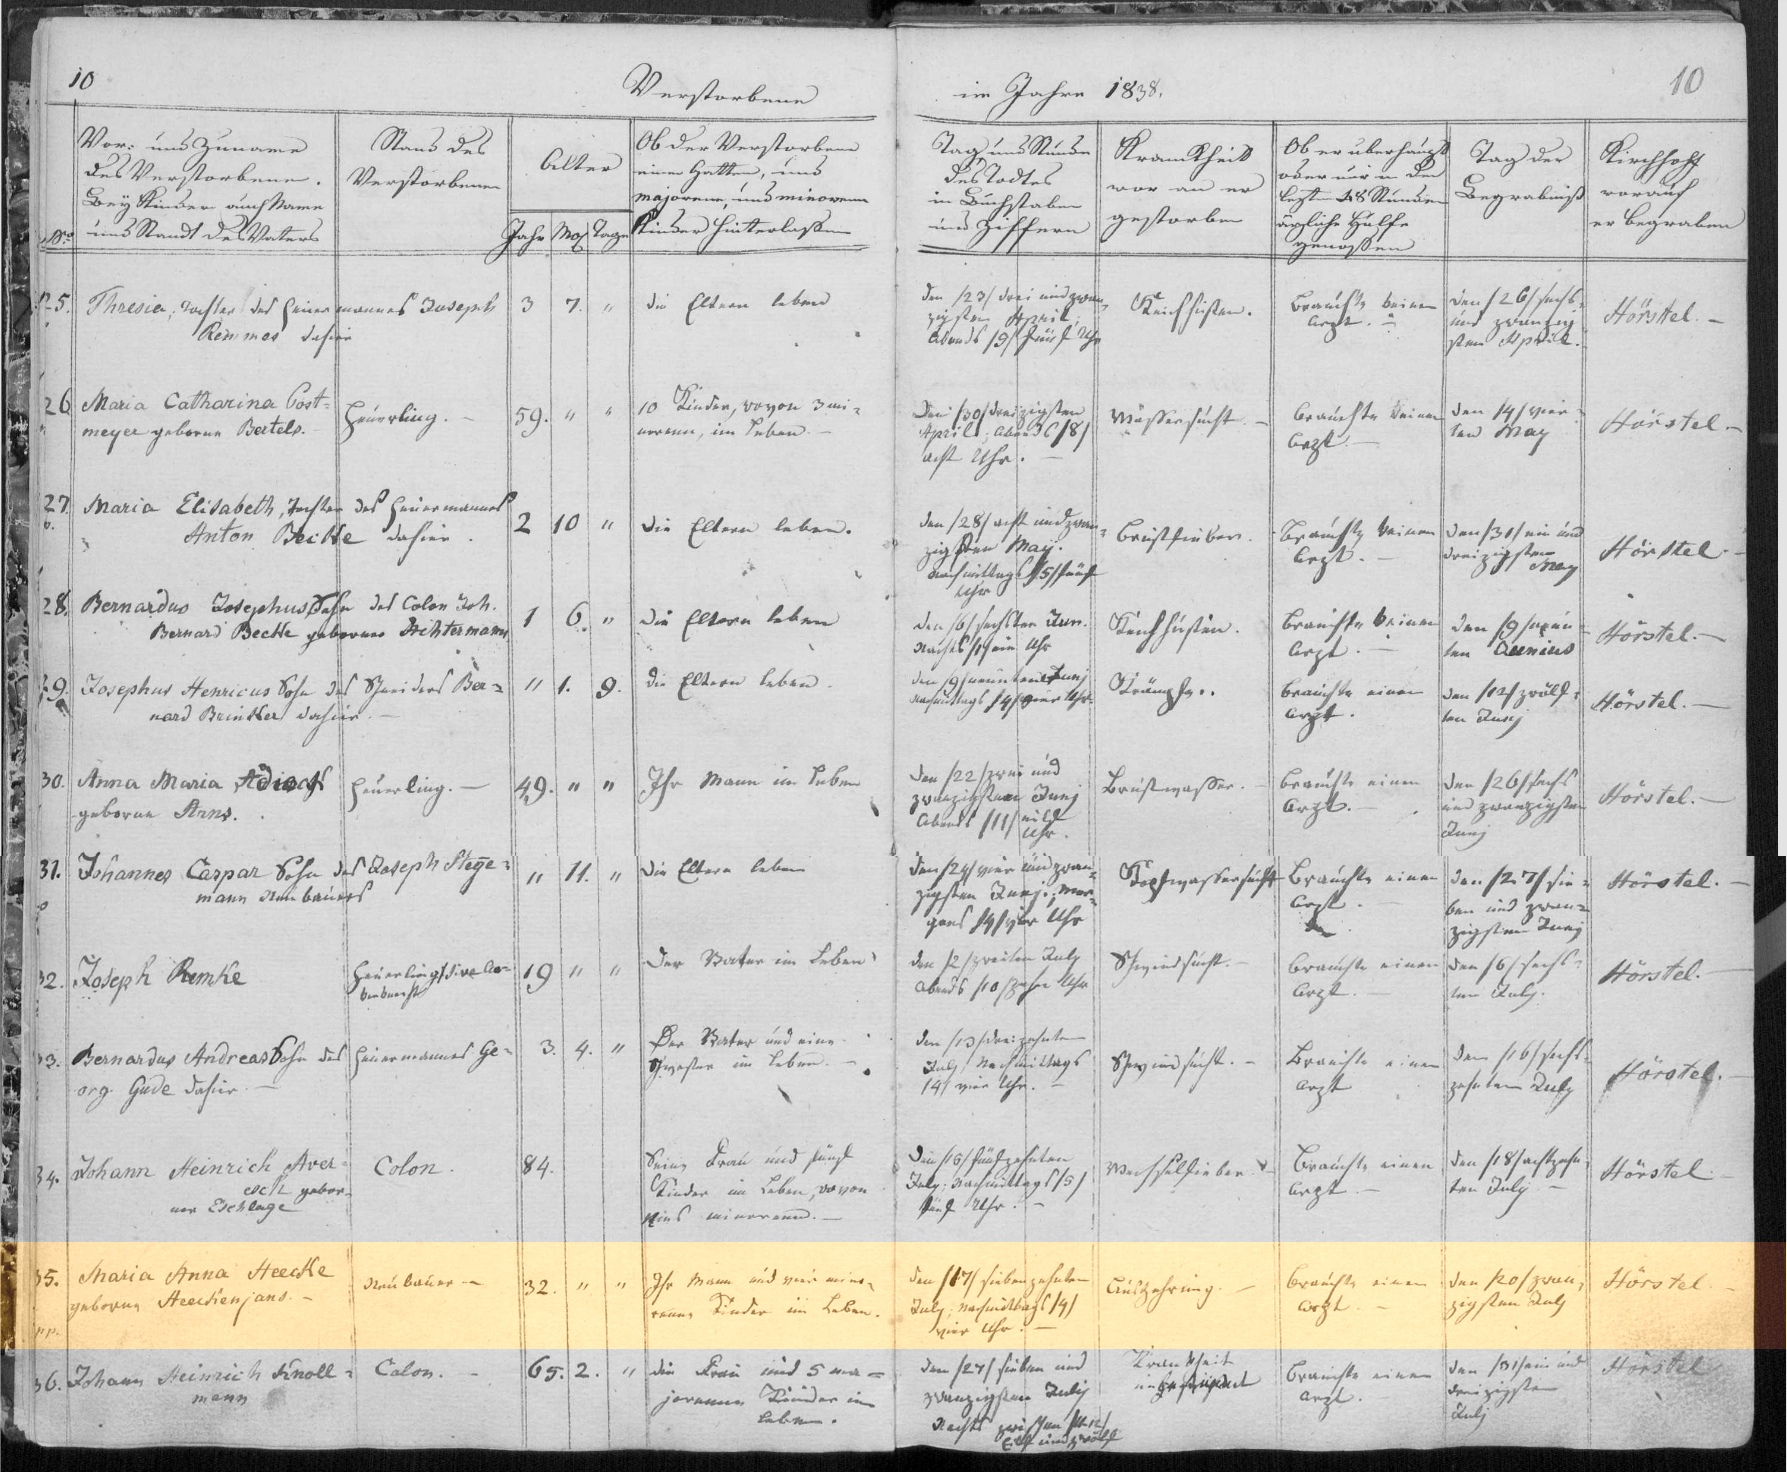 10
Verstorbene
im Jahre 1838.
10
No
Vor- und Zuname
des Verstorbenen.
Bey Kinder auch Name
und Standt des Vaters
Stand des
Verstorbenen
Alter
Jahr Mo. Tage
Ob der Verstorbene
einen Gatten, und
majorenn, und minorenn
Kinder hinterlassen
Tag und Stunde
des Todtes
in Buchstaben
und Ziffern
Krankheit
wor an er
gestorben
Ob er überhaupt
oder nur in den
lezt 48 Stunden
ärzliche Hülfe
genossen
Tag der
Begräbniß
Kirchhoff
worauf
er begraben
25. Thresia, Tochter des Heuermannes Joseph
Remmes dahier
3 7. "
die Eltern leben
den /23/ drei und zwan-
zigsten April,
Abends
Uhr
Keichhusten.
Brauchte keinen
Arzt. -
den /26/ sechs-
und zwanzig-
sten April.
Hörstel. -
26 Maria Catharina Post-
meyer geborne Bertels.
Heuerling. -
59. " "
10 Kinder, wovon 3 mi-
norenn, im Leben -
Den /30/ dreizigsten
April, Abends /8/
acht Uhr. -
Wassersucht. -
Brauchte keinen
Arzt -
den /4/ vier-
ten May
Hörstel -
27. Maria Elisabeth, Tochter des Heuermannes
Anton Becke dahier.
2 10 "
die Eltern leben.
den /28/ acht und zwan-
zigsten May.
Nachmittags /5/ fünf
Uhr
Brustfieber.
Brauchte keinen
Arzt. -
den /31/ ein und
dreizigsten
May
Hörstel -
28. Bernardus Josephus, Sohn des Colon Joh.
Bernard Becke geborner Dichtermann
1 6. "
die Eltern leben
den /6/ sechsten Jun.
Nachts /1/ ein Uhr
Keichhusten.
Brauchte keinen
Arzt. -
den /9/ neun-
ten Junius
Hörstel. -
29. Josephus Henricus Sohn des Schneiders Ber-
nard Brinker dahier. -
" 1. 9.
die Eltern leben.
den /9/ neunten Junj
Nachmittags /4/ vier Uhr.
Krämpfe.
Brauchte einen
Arzt.
den /12/ zwölf-
ten Junj
Hörstel. -
30. Anna Maria
geborne Arns.
Heuerling. -
49. " "
Ihr Mann im Leben
den /22/ zwei und
zwanzigsten Junj
Abends /11/ eilf
Uhr.
Brustwasser. -
Brauchte einen
Arzt. -
den /26/ sechs
und zwanzigsten
Junj
Hörstel. -
31. Johannes Caspar Sohn des Joseph Stege-
mann Neubauers
" 11. "
die Eltern leben
den /24/ vier und zwan-
zigsten Junj, Mor-
gens /4/ vier Uhr
Kopfwassersucht
Brauchte einen
Arzt. -
den /27/ sie-
ben und zwan-
zigsten Junj
Hörstel. -
32. Joseph Remke
Heuerling, sive Ac-
kerknecht
19 " "
Der Vater im Leben
den /2/ zweiten July
Abends /10/ zehn Uhr
Schwindsucht. -
Brauchte einen
Arzt. -
den /6/ sechs-
ten July.
Hörstel. -
33. Bernardus Andreas Sohn des Heuermannes Ge-
org Gude dahier. -
3. 4. "
Der Vater und eine
Schwester im Leben. -
den /13/ dreizehnten
July Nachmittags
/4/ vier Uhr. -
Schwindsucht. -
Brauchte einen
Arzt
den /16/ sechs-
zehnten July
Hörstel. -
34. Johann Heinrich Aver-
esch gebor-
ner Eschlage
Colon.
84.
Seine Frau und fünf
Kinder im Leben, wovon
eins minorenn. -
Den fünfzehnten
July, Nachmittags /5/
fünf Uhr. -
Wechselfieber.
Brauchte einen
Arzt. -
den /18/ achtzehn-
ten July. -
Hörstel -
35. Maria Anna Heecke
geborne Heeckenjans. -
Neubauer -
32. " "
Ihr Mann und vier mino-
renne Kinder im Leben.
den /17/ siebenzehnten
July, Nachmittags /4/
vier Uhr. -
Auszehrung. -
Brauchte einen
Arzt. -
den /20/ zwan-
zigsten July
Hörstel -
36. Johann Heinrich Knoll-
mann
Colon. -
65. 2. "
die Frau und 5 ma-
jorenne Kinder im
Leben.
den /27/ sieben und
zwanzigsten Julj
Nachts zwischen 11-12/
Eilf und zwölf
Krankheit
unbekannt
Brauchte einen
Arzt.
den /31/ ein und
dreizigsten
Julj
Hörstel